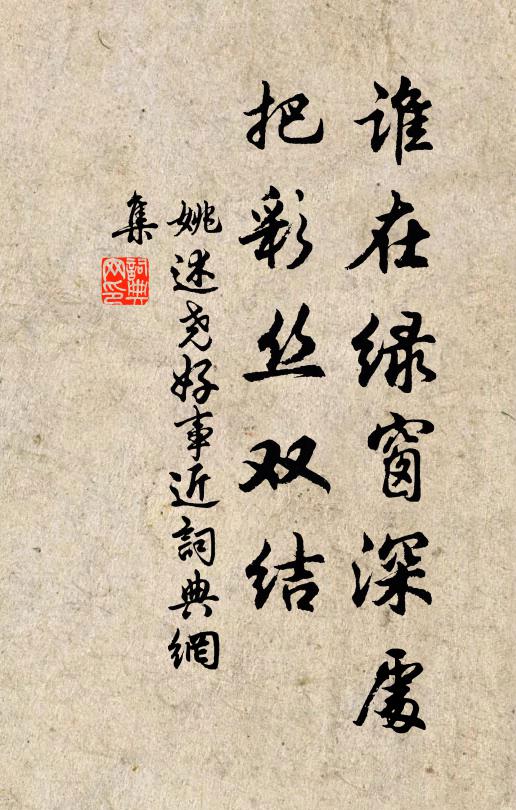 谁在绿窗深处
把彩丝双结
姚述尧好事近詞典網
集
詞典
网印